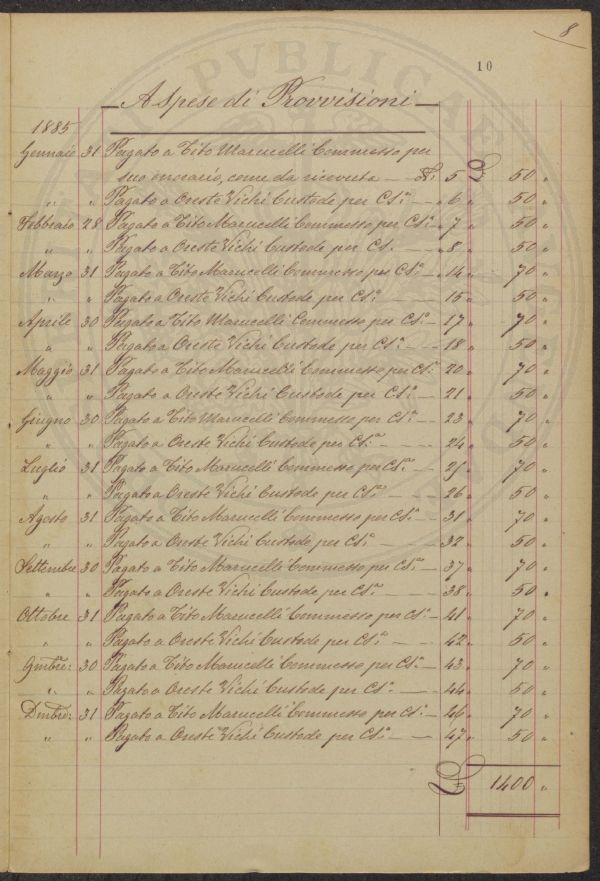 8
10
A spese di Provvisioni
1885
Gennaio 31 Pagato a Tito Marucelli Commesso per
suo onorario, come da ricevuta — N.° 5 £ 50 "
" " Pagato a Oreste Vichi Custode per Cs.° — " 6 " 50 "
Febbraio 28 Pagato a Tito Marucelli Commesso per Cs.° " 7 " 50 "
" " Pagato a Oreste Vichi Custode per Cs. — " 8 " 50 "
Marzo 31 Pagato a Tito Marucelli Commesso per Cs.° " 14 " 70 "
" " Pagato a Oreste Vichi Custode per Cs.° — — 15 " 50 "
Aprile 30 Pagato a Tito Marucelli Commesso per Cs.° — 17 " 70 "
" " Pagato a Oreste Vichi Custode per Cs.° — — 18 " 50 "
Maggio 31 Pagato a Tito Marucelli Commesso per Cs.° 20 " 70 "
" " Pagato a Oreste Vichi Custode per Cs.° — — 21 " 50 "
Giugno 30 Pagato a Tito Marucelli Commesso per Cs.° — 23 " 70 "
" " Pagato a Oreste Vichi Custode per Cs.° — — 24 " 50 "
Luglio 31 Pagato a Tito Marucelli Commesso per Cs.° — 25 " 70 "
" " Pagato a Oreste Vichi Custode per Cs.° — — 26 " 50 "
Agosto 31 Pagato a Tito Marucelli Commesso per Cs.° — 31 " 70 "
" " Pagato a Oreste Vichi Custode per Cs.° — — 32 " 50 "
Settembre 30 Pagato a Tito Marucelli Commesso per Cs.° — 37 " 70 "
" " Pagato a Oreste Vichi Custode per Cs.° — — 38 " 50 "
Ottobre 31 Pagato a Tito Marucelli Commesso per Cs.° — 41 " 70 "
" " Pagato a Oreste Vichi Custode per Cs.° — — 42 " 50 "
9mbre: 30 Pagato a Tito Marucelli Commesso per Cs.° — 43 " 70 "
" " Pagato a Oreste Vichi Custode per Cs.° — — 44 " 50 "
Dmbre: 31 Pagato a Tito Marucelli Commesso per Cs.° — 46 " 70 "
" " Pagato a Oreste Vichi Custode per Cs.° — — 47 " 50 "
£ 1400 "